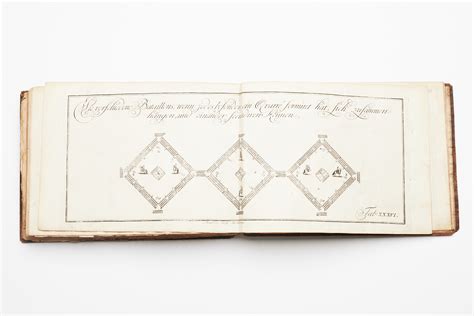 Bataillons, wenn jedes besonders ein Quarré formiret hat, sich zusammen
hängen, und einander secundiren können
Tab. XXXVI.